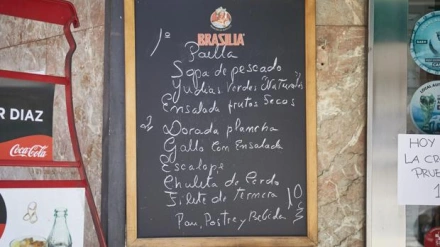 BRASILIA
1º
Paella
Sopa de pescado
Yudias Verdes Naturari
Ensalada frutos Secos
2º Dorada plancha
Gallo con Ensalada
Escalope
Chuleta de Cerdo
Filete de Ternera 10
Pan, Postre y Bebida
R DIAZ
Coca-Cola
HOY
LA CE
PRUE
1